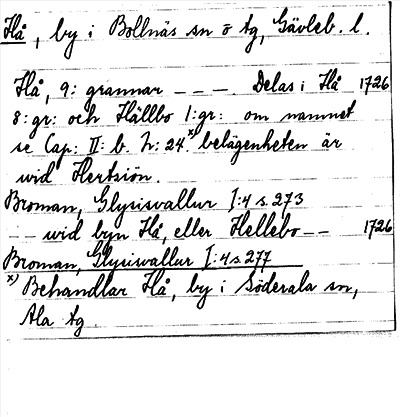 Hå, by i Bollnäs sn ö tg, Gävleb. l.
Hå, 9: grannar - - - . Delas i Hå 1726
8: gr: och Hällbo 1: gr: om namnet
se Cap: II: b. N: 24.x) belägenheten är
wid Hertsiön.
Broman, Glysisvallur I:4 s. 273
-- wid byn Hå, eller Hellebo -- 1726
Broman, Glysisvallur I:4 s. 277
x) Behandlar Hå, by i Söderala sn,
Ala tg.